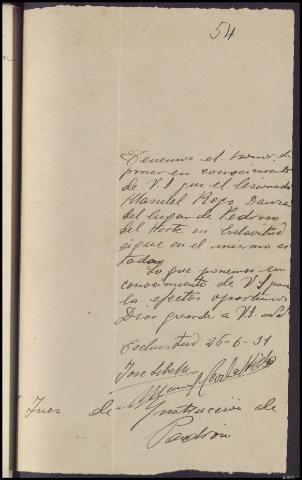 54
Tenemos el honor de
poner en conocimiento
de V.S que el lesionado
Manuel Rego
del lugar de Pedroso
del Norte en Esclavitud
sigue en el mismo es
tado
Lo que ponemos en
conocimiento de V.S para
los efectos oportunos
Dios guarde a V.S. m.
Esclavitud 26-6-31
Jose
Manuel
Juez de Instrucción de
Padrón